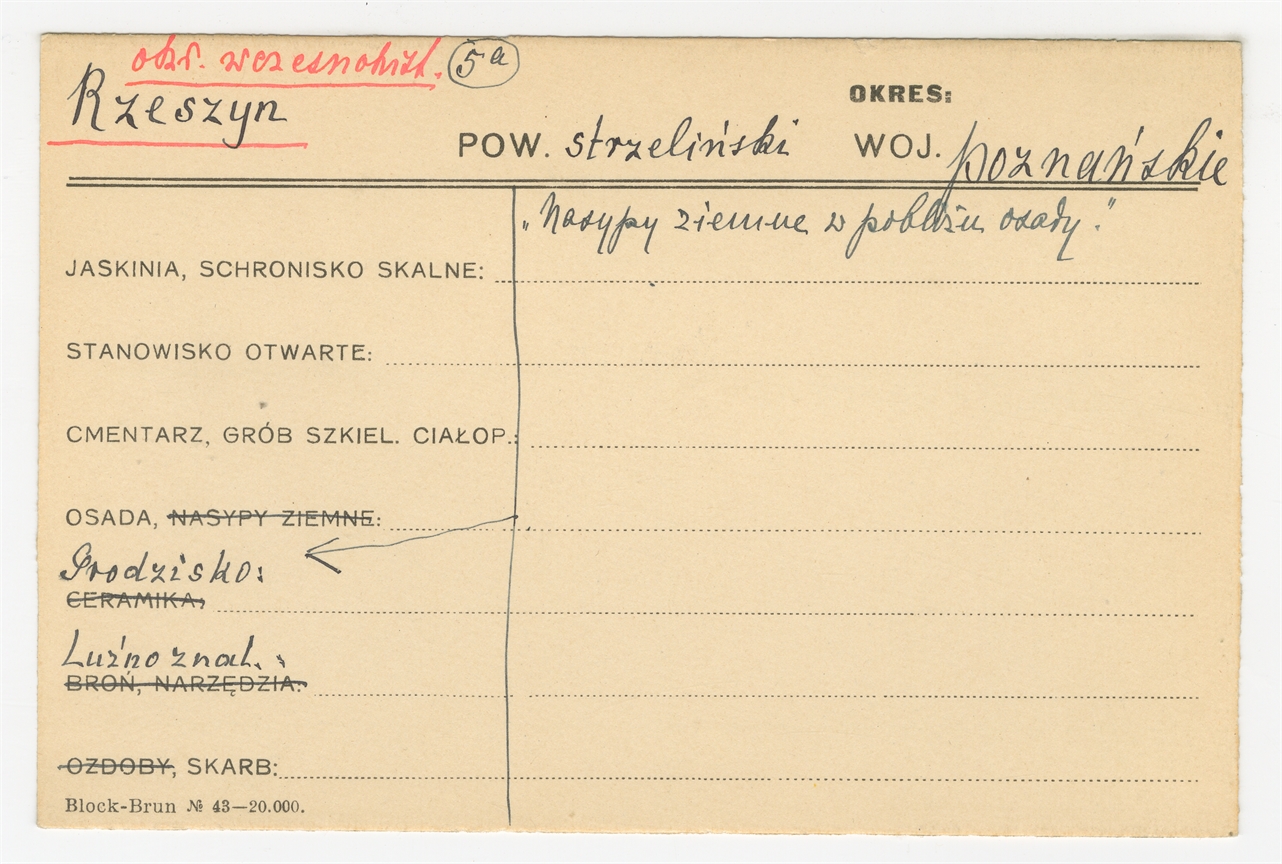 okr. wczesnohist. 5a
Rzeszyn
OKRES:
POW. strzeliński WOJ. poznańskie
„Nasypy ziemne w pobliżu osady."
JASKINIA, SCHRONISKO SKALNE:
STANOWISKO OTWARTE:
CMENTARZ, GRÓB SZKIEL. CIAŁOP.:
OSADA, NASYPY ZIEMNE:
Grodzisko:
CERAMIKA:
Luźno znal.:
BROŃ, NARZĘDZIA:
OZDOBY, SKARB:
Block-Brun № 43—20.000.